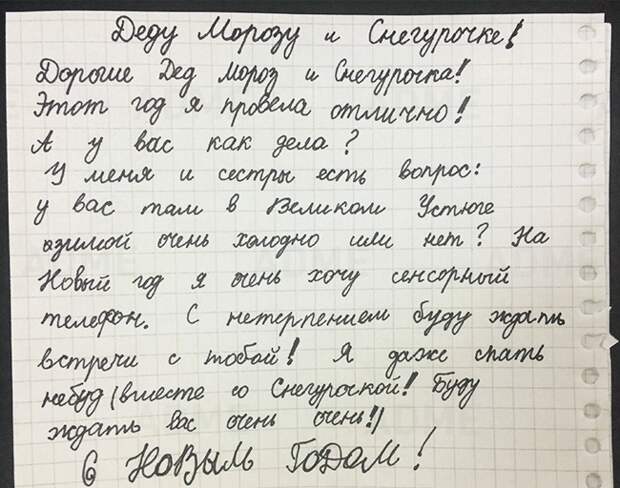 Деду Морозу и Снегурочке!
Дорогие Дед Мороз и Снегурочка!
Этот год я провела отлично!
А у вас как дела?
У меня и сестры есть вопрос:
у вас там в Великом Устюге
зимой очень холодно или нет? На
Новый год я очень хочу сенсорный
телефон. С нетерпением буду ждать
встречи с тобой! Я даже спать
небуд (вместе со Снегурочкой! Буду
ждать вас очень очень!)
С Новым Годом!